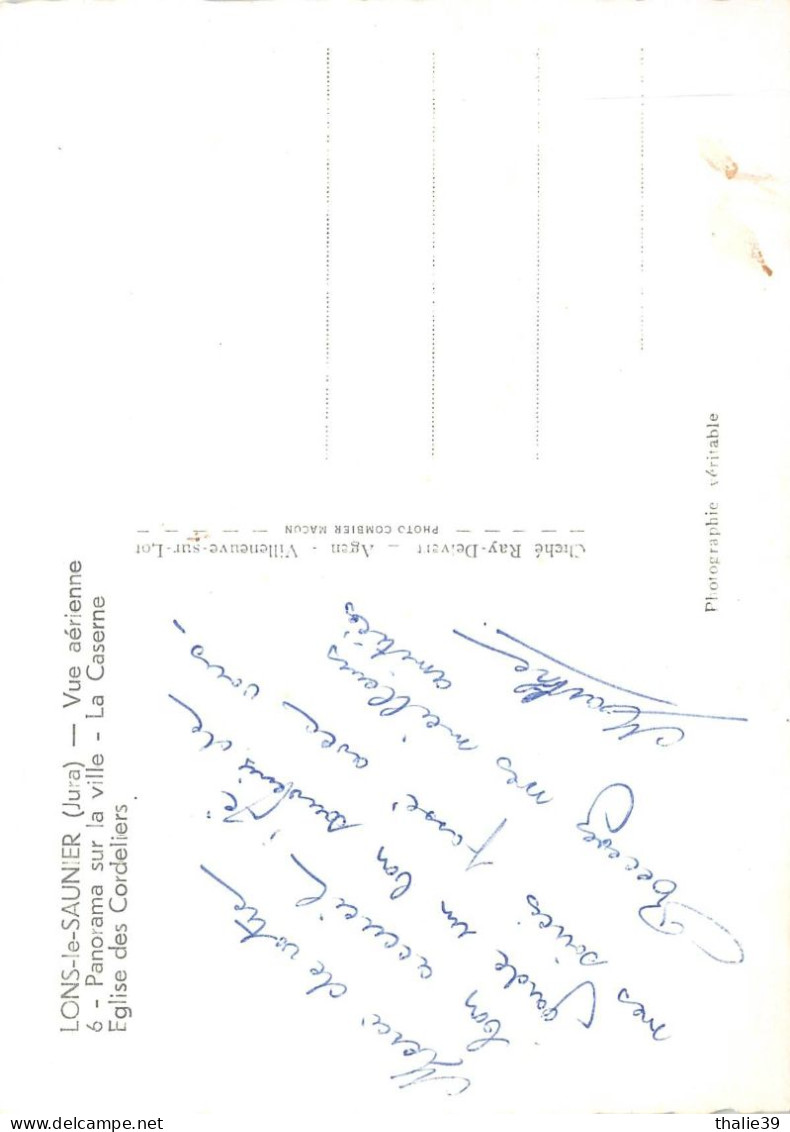 LONS-le-SAUNIER (Jura) — Vue aérienne
6 - Panorama sur la ville - La Caserne
Eglise des Cordeliers
Merci de votre
bon accueil, je
garde un bon souvenir de
mes soirées passé avec vous.
Recevez mes meilleurs
amitiés
Marthe
Cliché Ray-Delvert — Agen - Villeneuve-sur-Lot
PHOTO COMBIER MACON
Photographie véritable
thalie39